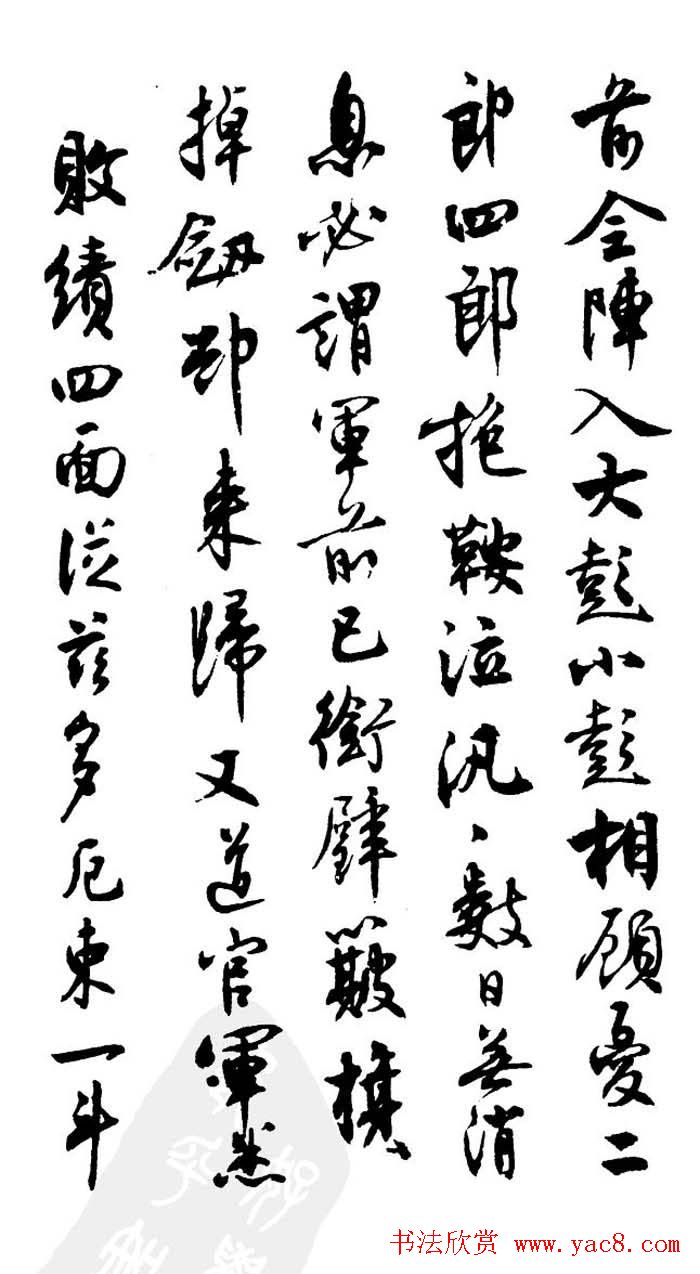 前全陣入大彭小彭相顧憂二
郎四郎抱鞍泣汎〻數日無消
息必謂軍前已銜璧簸旗
掉劍却來歸又道官軍悉
敗績四面從茲多厄束一斗
书法欣赏 www.yac8.com